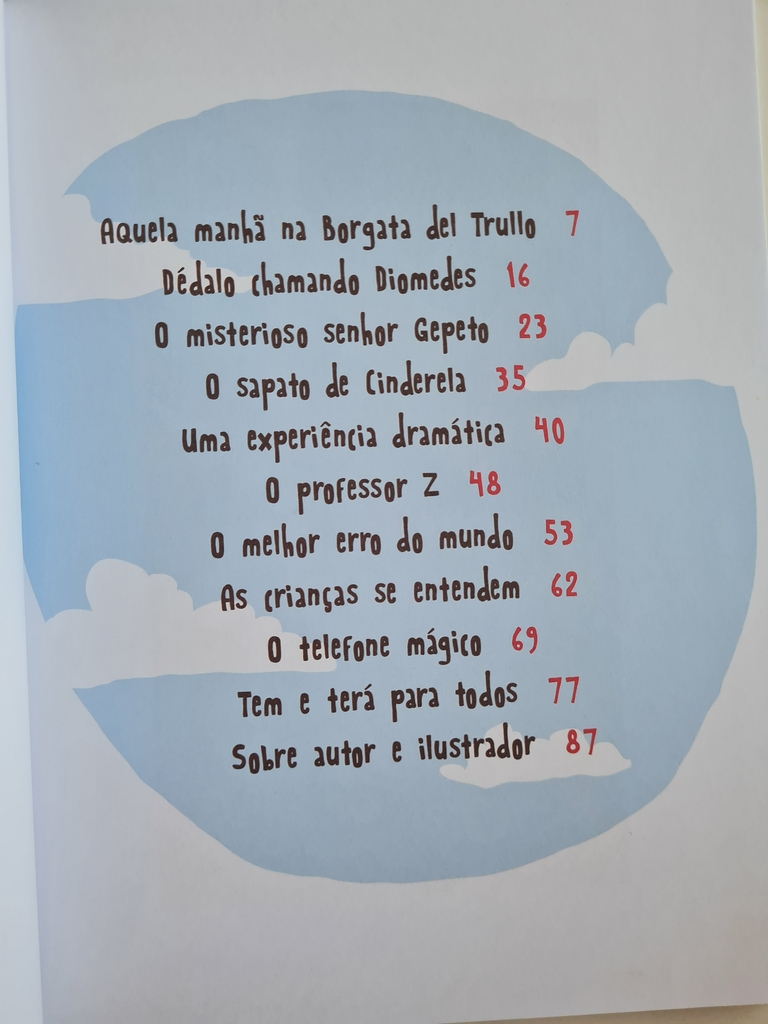 Aquela manhã na Borgata del Trullo 7
Dédalo chamando Diomedes 16
O misterioso senhor Gepeto 23
O sapato de Cinderela 35
Uma experiência dramática 40
O professor Z 48
O melhor erro do mundo 53
As crianças se entendem 62
O telefone mágico 69
Tem e terá para todos 77
Sobre autor e ilustrador 87